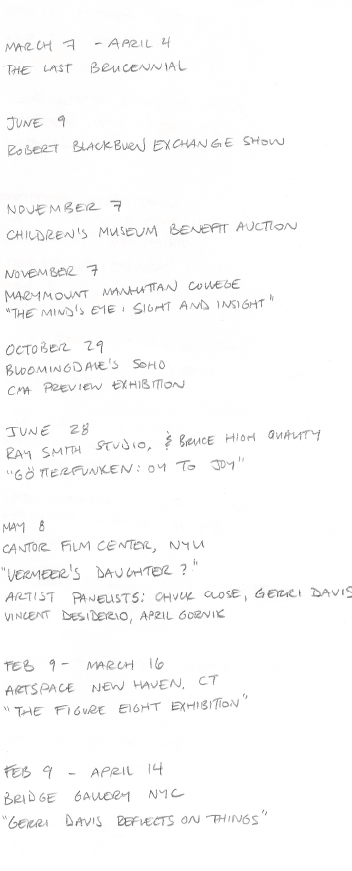 MARCH 7 - APRIL 4
THE LAST BRUCENNIAL
JUNE 9
ROBERT BLACKBURN EXCHANGE SHOW
NOVEMBER 7
CHILDREN'S MUSEUM BENEFIT AUCTION
NOVEMBER 7
MARYMOUNT MANHATTAN COLLEGE
"THE MIND'S EYE: SIGHT AND INSIGHT"
OCTOBER 29
BLOOMINGDALE'S SOHO
CMA PREVIEW EXHIBITION
JUNE 28
RAY SMITH STUDIO, & BRUCE HIGH QUALITY
"GÖTTERFUNKEN: OY TO JOY"
MAY 8
CANTOR FILM CENTER, NYU
"VERMEER'S DAUGHTER?"
ARTIST PANELISTS: CHUCK CLOSE, GERRI DAVIS
VINCENT DESIDERIO, APRIL GORNIK
FEB 9 - MARCH 16
ARTSPACE NEW HAVEN, CT
"THE FIGURE EIGHT EXHIBITION"
FEB 9 - APRIL 14
BRIDGE GALLERY NYC
"GERRI DAVIS REFLECTS ON THINGS"